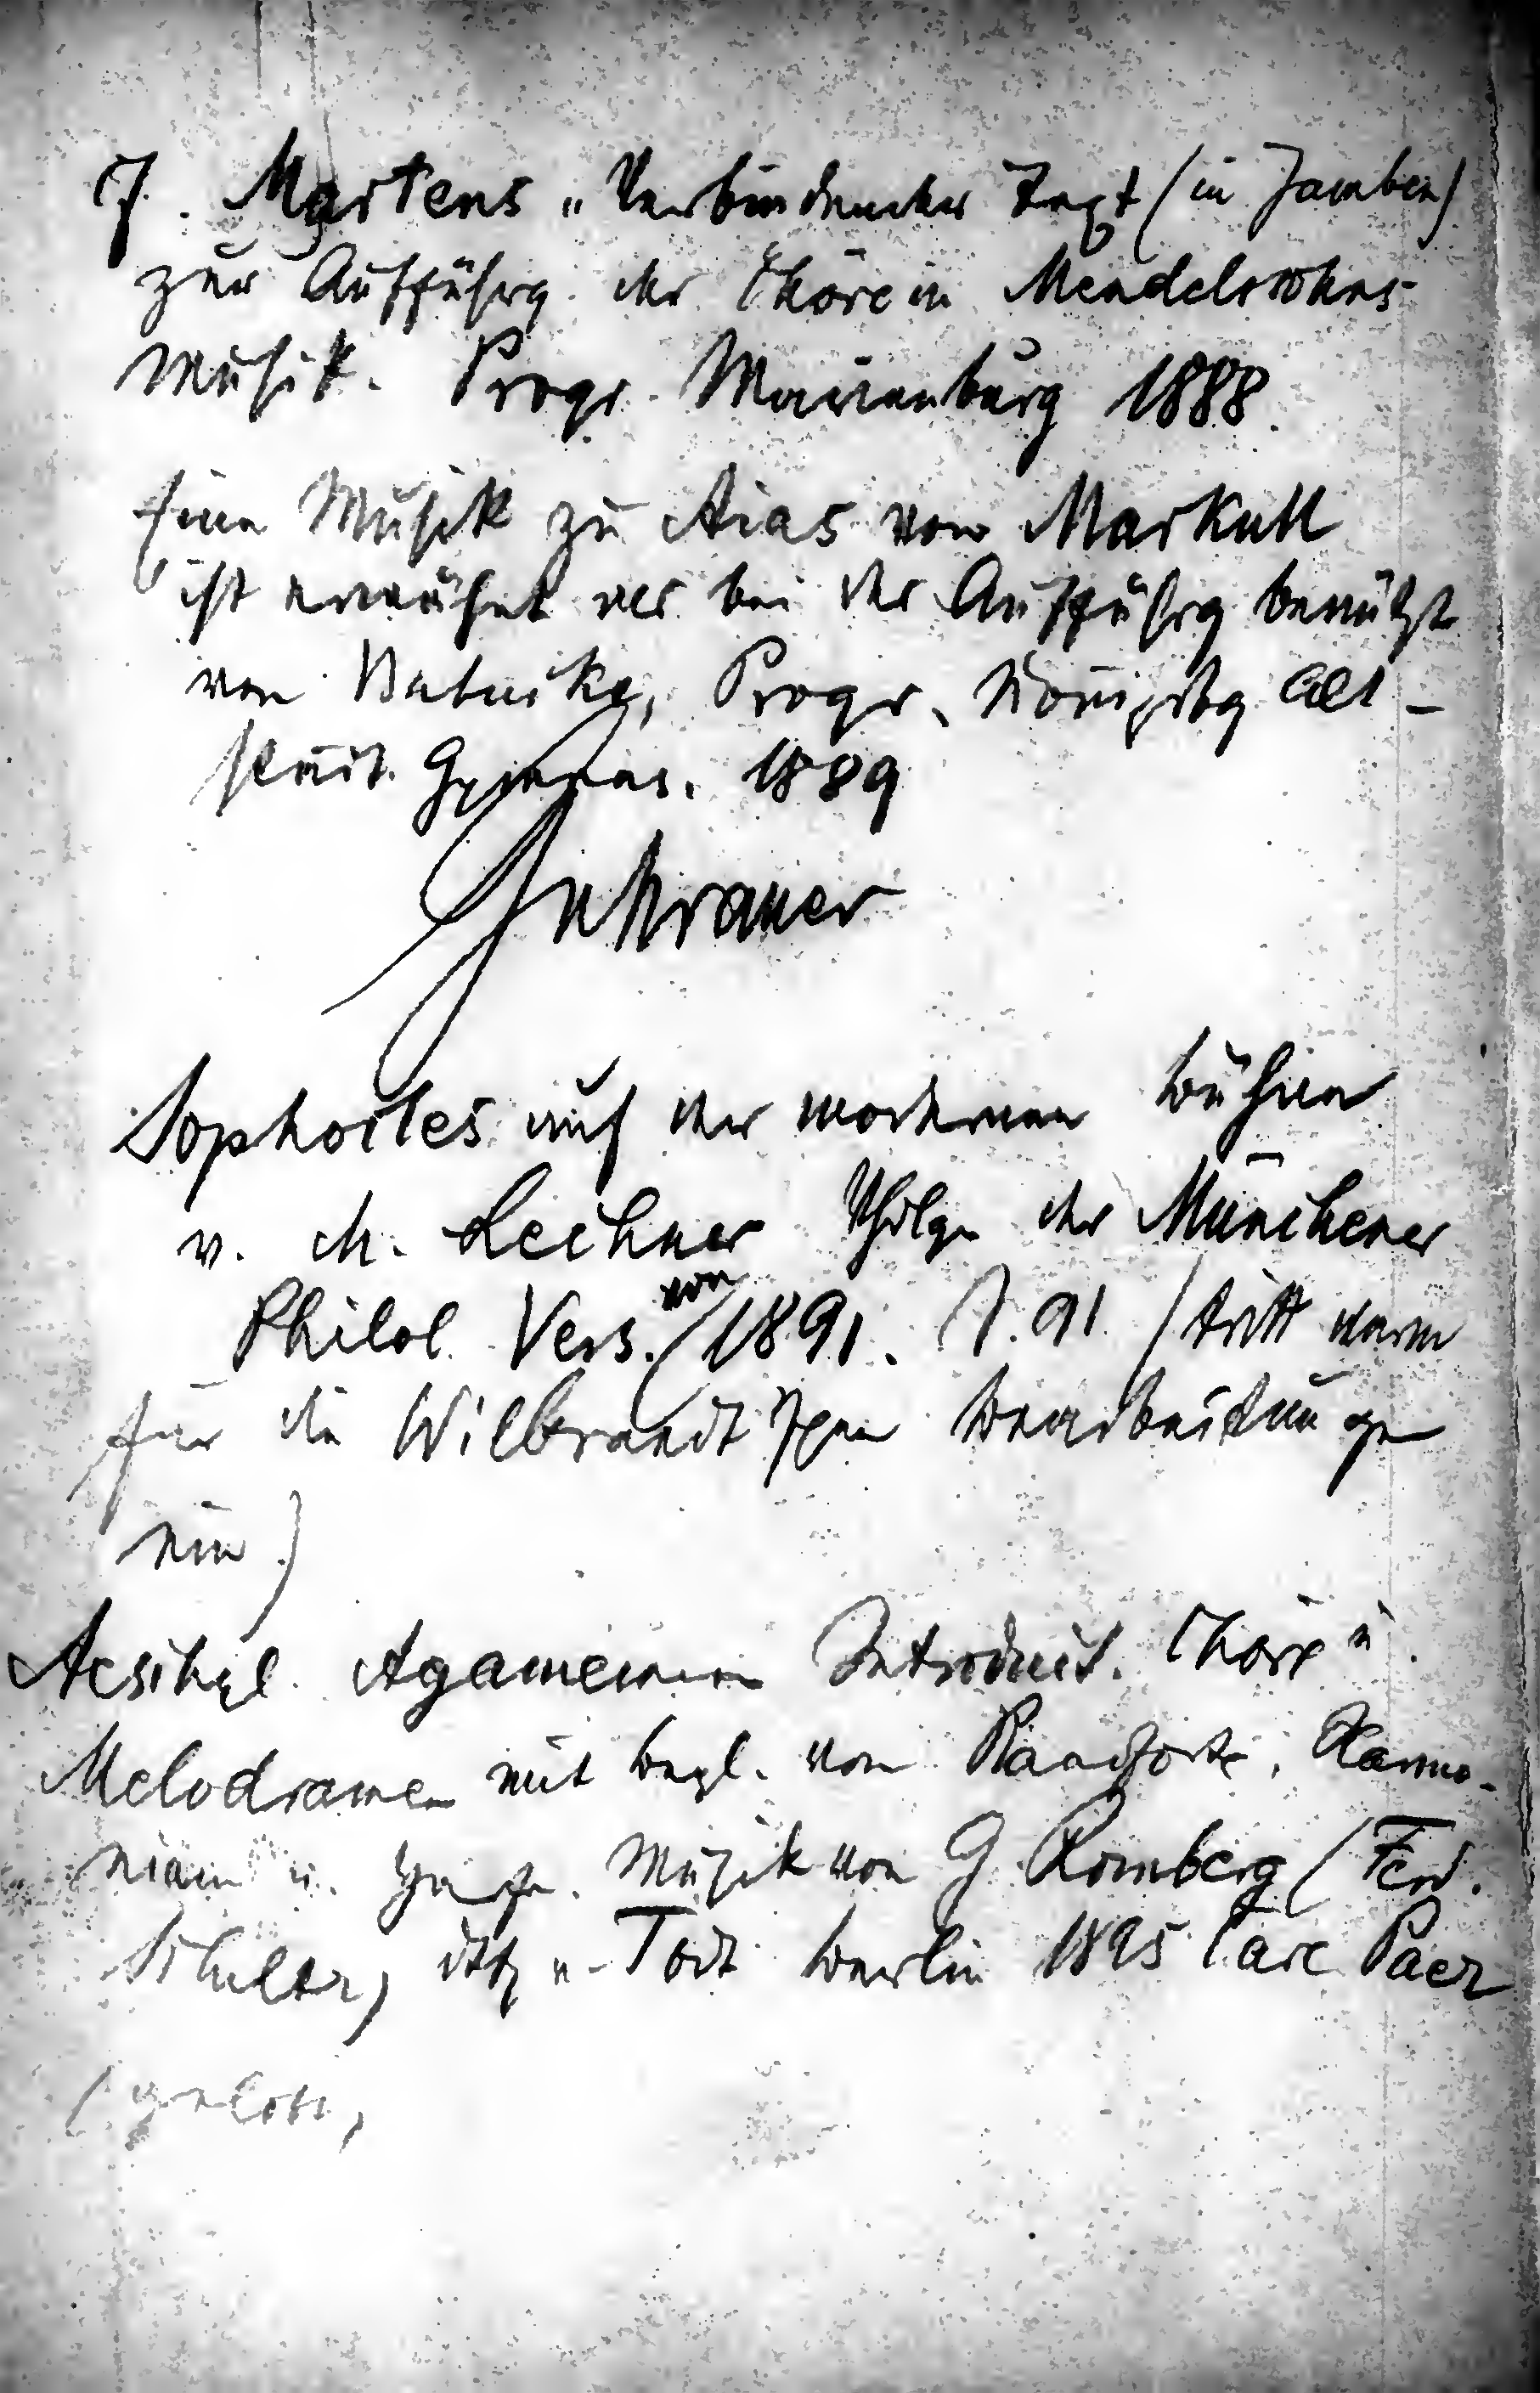 J. Martens „Verbindender Text (in Jamben)
zur Aufführg der Chöre in Mendelssohns
Musik. Progr. Marienburg 1888.
Eine Musik zu Aias von Markull
ist erwähnt als bei der Aufführg benützt
von Babucke, Progr. Königsbg Alt-
städt. Gymnas. 1889
Guhrauer
Sophocles auf der modernen Bühne
v. M. Lechner Vhdlgn der Münchener
Philol. Vers. von 1891. S. 91 (tritt darin
für die Wilbrandtschen Bearbeitungen
ein.)
Aeschyl. Agamemnon Introduct. Chöre u.
Melodramen mit Begl. von Pianoforte, Harmo-
nium u. Harfe. Musik von G Romberg (Ferd.
Schultz) Berlin 1895 Carl Paez